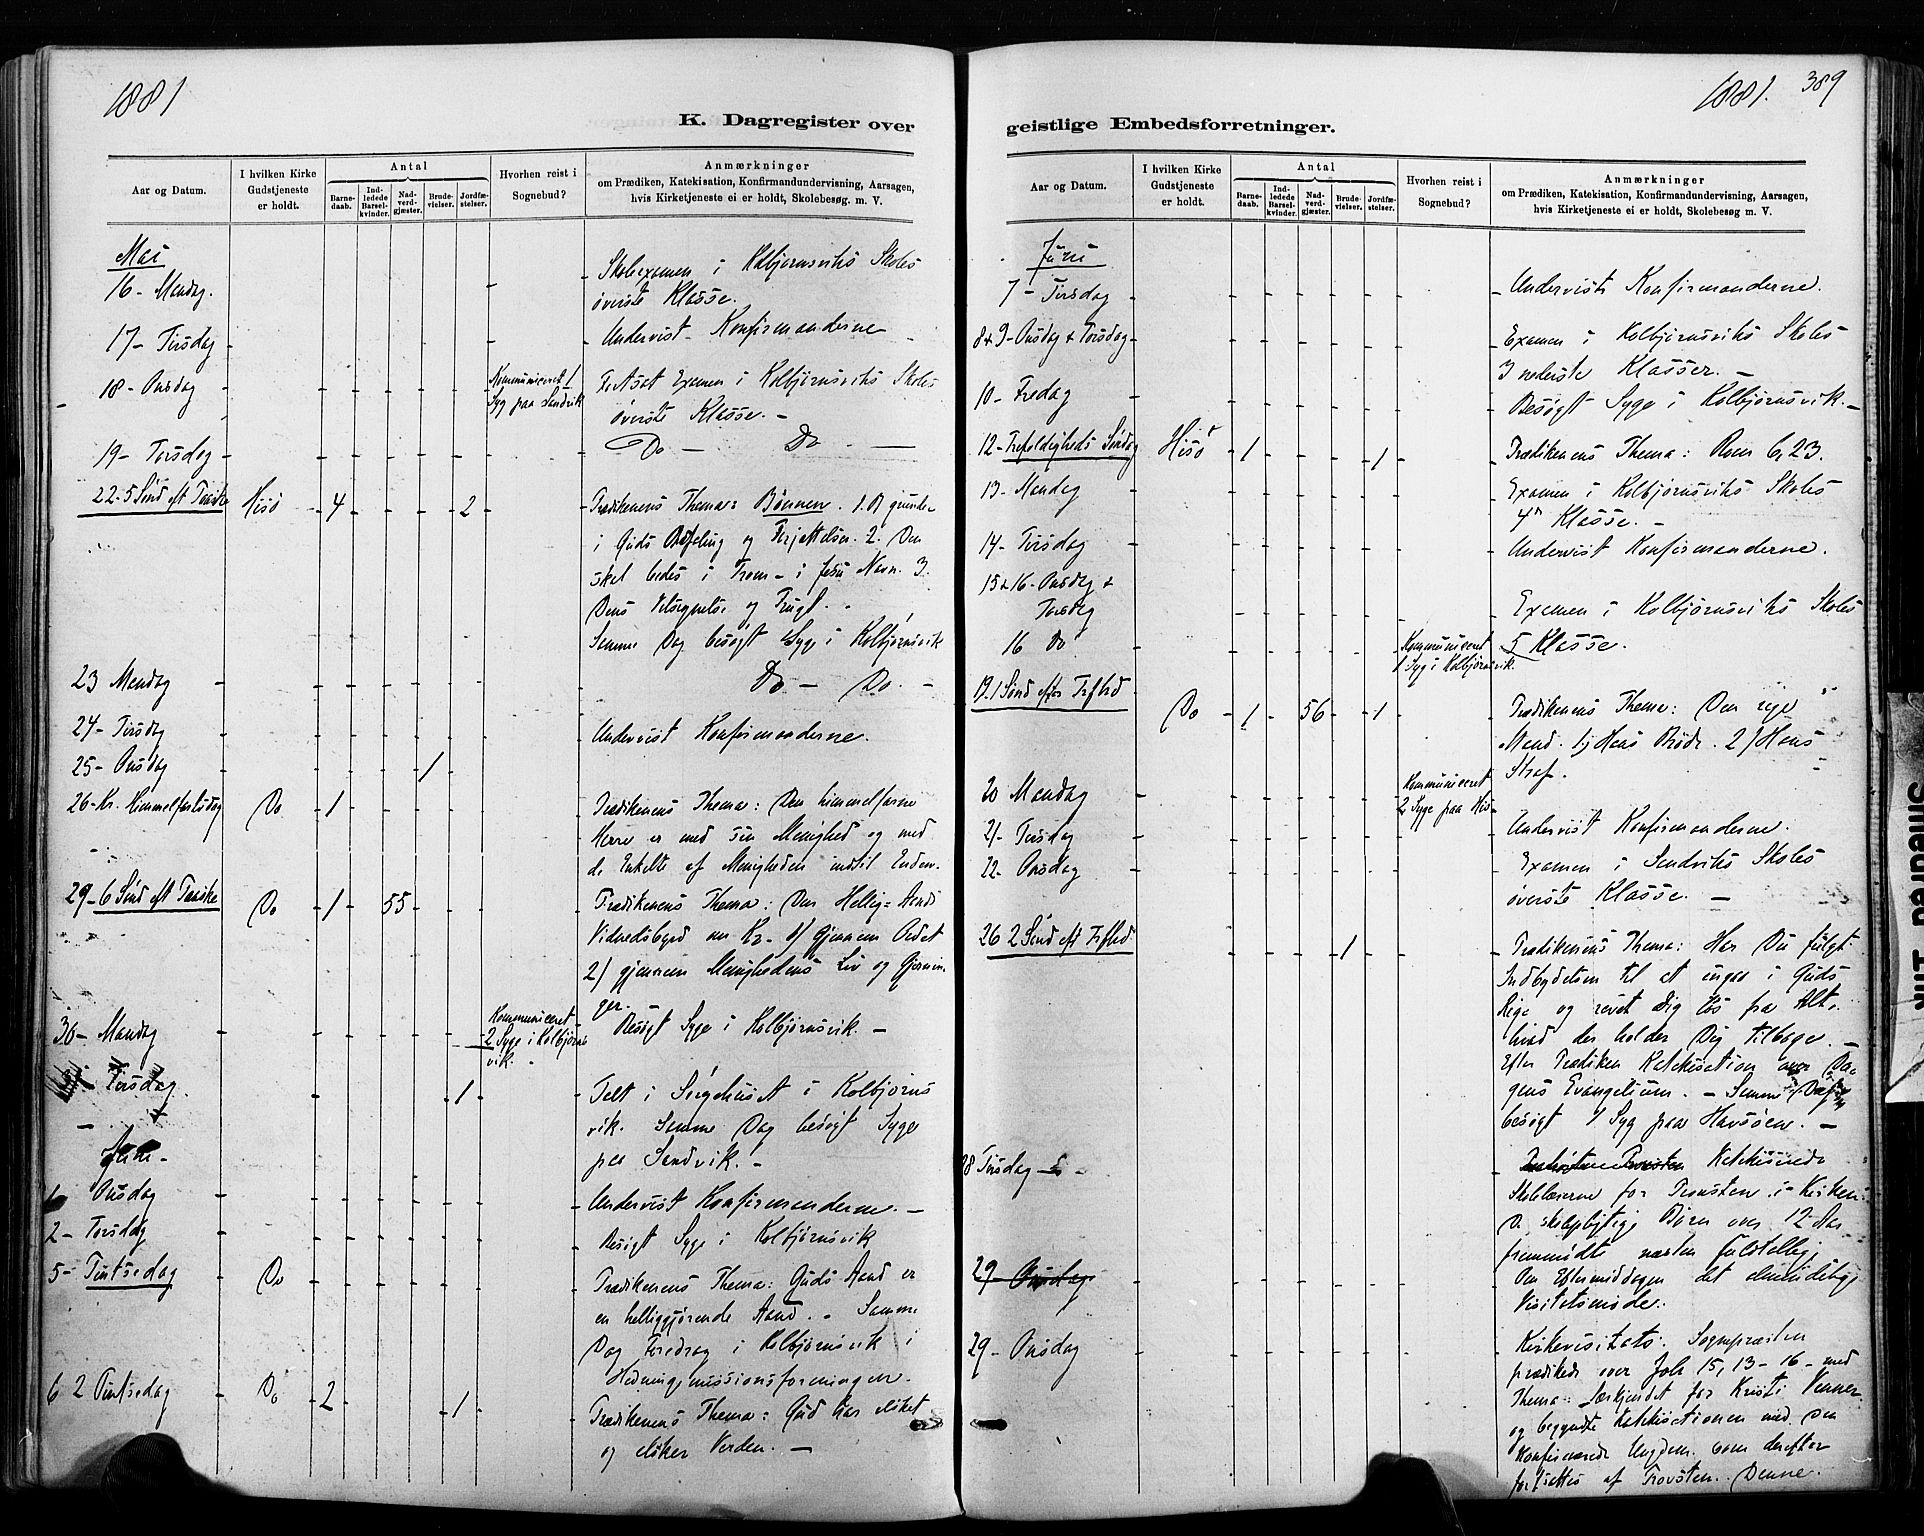 1881
K. Dagregister over
Antal
Aar og Datum.
I hvilken Kirke Gudstjeneste er holdt.
Barnedaab.
Indledede Barselkvinder.
Nadverdgjæster.
Brudevielser.
Jordfæstelser.
Hvorhen reist i Sognebud?
Anmærkninger
om Prædiken, Katekisation, Konfirmandundervisning, Aarsagen,
hvis Kirketjeneste ei er holdt, Skolebesøg m. V.
Mai
16 - Mandag. Skoleexamen i Kolbjørnsviks Skoles
øverste Klasse.
17 - Tirsdag Undervist Konfirmanderne
18 - Onsdag Kommuniceret 1 Syg paa Sandvik Fortsat Examen i Kolbjørnsviks Skoles
øverste Klasse. -
19 - Torsdag Do - Do -
22 - 5 Sønd eft Paaske Hisø 4 2 Prædikenens Thema: Bønnen. 1. Dj grunder
i Guds Befaling og Forjættelser. 2. Den
skal bedes i Troen - i Jesu Navn. 3.
Dens Velsignelse og Frugt.
Samme Dag besøgt Syge i Kolbjørnsvik
23 Mandag Do - Do. -
24 - Tirsdag Undervist Konfirmanderne.
25 - Onsdag 1
26 - Kr. Himmelfartsdag Do 1 Prædikenens Thema: Den himmelfarne
Herre er med sin Menighed og med
de Enkelte af Menigheden indtil Enden.
29 - 6 Sønd eft Paaske Do 1 55 Prædikenens Thema: Den Hellig-Aands
Vidnesbyrd om Kr. 1) gjennem Ordet
2) gjennem Menighedens Liv og Gjernin-
ger.
30 - Mandag Kommuniceret 2 Syge i Kolbjørnsvik. Besøgt Syge i Kolbjørnsvik. -
Tirsdag 1 Talt i Sørgehuset i Kolbjørns
vik. Samme Dag besøgt Syge
paa Sandvik. -
Juni -
1 Onsdag Undervist Konfirmanderne. -
2 - Torsdag Besøgt Syge i Kolbjørnsvik
5 - Pintsedag Do Prædikenens Thema: Guds Aand er
en helliggjørende Aand. - Samme
Dag Foredrag i Kolbjørnsvik i
Hedningemissionsforeningen.
6 2 Pintsedag Do 2 1 Prædikenens Thema: Gud har elsket
og elsker Verden. -
1881. 389
geistlige Embedsforretninger.
Antal
Aar og Datum.
I hvilken Kirke Gudstjeneste er holdt.
Barnedaab.
Indledede Barselkvinder.
Nadverdgjæster.
Brudevielser.
Jordfæstelser.
Hvorhen reist i Sognebud?
Anmærkninger
om Prædiken, Katekisation, Konfirmandundervisning, Aarsagen,
hvis Kirketjeneste ei er holdt, Skolebesøg m. V.
Juni
7 - Tirsdag Undervist Konfirmanderne.
8 + 9 - Onsdag + Torsdag Examen i Kolbjørnsviks Skoles
3 nederste Klasser. -
10 - Fredag Besøgt Syge i Kolbjørnsvik. -
12 - Trefoldigheds Søndag Hisø 1 1 Prædikenens Thema: Rom 6, 23.
13 - Mandag Examen i Kolbjørnsviks Skoles
4de Klasse. -
14 - Tirsdag Undervist Konfirmanderne.
15 + 16 - Onsdag +
Torsdag Examen i Kolbjørnsviks Skoles
16 Do Kommuniceret 1 Syg i Kolbjørnsvik 5 Klasse.
19. 1 Sønd efter Trefhd Do 1 56 1 Prædikenens Thema: Den rige
Mand. 1) Hans Brøde. 2) Hans
Straf.
20 Mandag Kommuniceret 2 Syge paa His-
21 - Tirsdag Undervist Konfirmanderne.
22 - Onsdag Examen i Sandviks Skoles
øverste Klasse. -
26 2 Sønd eft Trefhd 1 Prædikenens Thema: Har Du fulgt
Indbydelsen til at indgaa i Guds
Rige og revet dig løs fra Alt,
hvad der holder Dig tilbage. -
Efter Prædiken Katekisation over Da-
gens Evangelium. - Samme Dag
besøgt 1 Syg paa Havsøen. -
28 Tirsdag Katekiserede
Skolelærerne for Provsten i Kirken.
De skolepligtige Børn over 12 Aar
fremmødte næsten fuldstendig.
Om Eftermiddagen det almindelige
Visitatsmøde.
29 - Onsdag
29 - Onsdag Kirkevisitats. Sognepræsten
prædikede over Joh 15, 13 - 16 - med
Thema: Særkjendet for Kristi Venner
og begyndte Katekisationen med den
konfirmerede Ungdom som derefter
fortsattes af Provsten. Denne